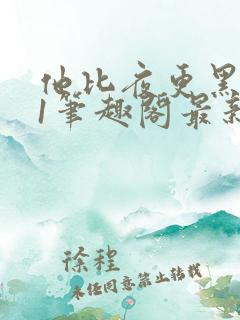 他比夜更黑
/笔趣阁最新
徐程
未经同意禁止转载